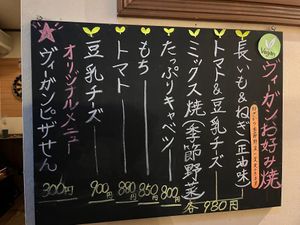 Vegan
ヴィーガンお好み焼
長いも&ねぎ(正油味)
トマト&豆乳チーズ
ミックス焼(季節野菜)
各 980円
たっぷりキャベツ 800円
もち 850円
トマト 880円
豆乳チーズ 900円
オリジナルメニュー
ヴィーガンピザせん 300円